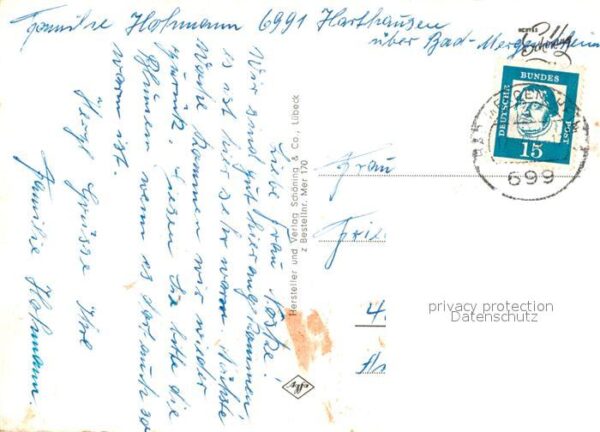 Familie Hofmann 6991 Harthausen
über Bad-Mergentheim
Liebe Frau
Wir sind gut hier angekommen,
es ist hier sehr warm. Nächste
Woche kommen wir wieder
zurück. Giesen Sie bitte die
Blumen wenn es dort auch so
warm ist
Herzl. Grüsse Ihre
Familie Hofmann.
Hersteller und Verlag Schöning & Co., Lübeck
z Bestellnr. Mer 170
Frau
DEUTSCHE
BUNDES
POST
15
699
privacy protection
Datenschutz